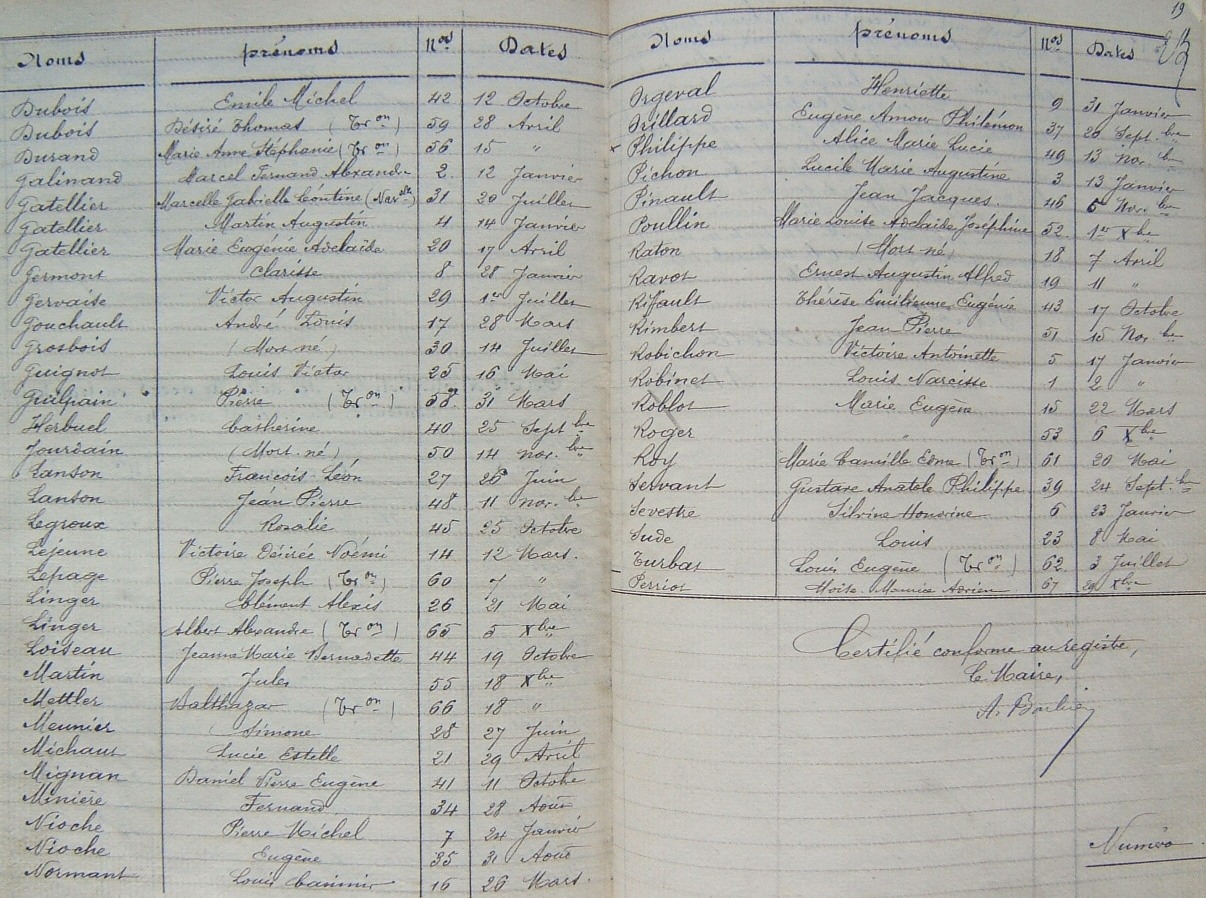 Noms prénoms Nos Dates
Dubois Emile Michel 42 12 Octobre
Dubois Désiré Thomas (Tron) 59 28 Avril
Durand Marie Anne Stéphanie (Tron) 56 15 "
Galinand Marcel Fernand Alexandre 2. 12 Janvier
Gatellier Marcelle Gabrielle Léontine 31 20 Juillet
Gatellier Martin Augustin 4 14 Janvier
Gatellier Marie Eugénie Adelaïde 20 17 Avril
Germont Clarisse 8 28 Janvier
Gervaise Victor Augustin 29 1er Juillet
Gouchault André Louis 17 28 Mars
Grosbois (Mort né) 30 14 Juillet
Guignot Louis Victor 25 16 Mai
Guilpain Pierre (Tron) 58 31 Mars
Herbuel Catherine 40 25 Sept bre
Jourdain (Mort né) 50 14 Nov. bre
Lanson François Léon 27 26 Juin
Lanson Jean Pierre 48 11 Nov. bre
Legroux Rosalie 45 25 Octobre
Lejeune Victoire Désirée Noémi 14 12 Mars.
Lepage Pierre Joseph (Tron) 60 7 "
Linger Clément Alexis 26 21 Mai
Linger Albert Alexandre (Tron) 65 5 Xbre
Loiseau Jeanne Marie Bernadette 44 19 Octobre
Martin Jules 55 18 Xbre
Mettler Balthazar (Tron) 66 18 "
Meunier Simone 28 27 Juin
Michaut Lucie Estelle 21 29 Avril
Mignan Daniel Pierre Eugène 41 11 Octobre
Minière Fernand 34 28 Août
Nioche Pierre Michel 7 24 Janvier
Nioche Eugène 35 31 Août
Normant Louis Casimir 16 26 Mars.
19
Noms prénoms Nos Dates
Orgeval Henriette 9 31 Janvier
Orillard Eugène Amour Philémon 37 20 Sept. bre
Philippe Alice Marie Lucie 49 13 Nov. bre
Pichon Lucile Marie Augustine 3 13 Janvier
Pinault Jean Jacques. 46 5 Nov. bre
Poullin Marie Louise Adelaïde Joséphine 52. 1er Xbre
Raton (Mort né) 18 7 Avril
Ravot Ernest Augustin Alfred 19 11 "
Riffault Thérèse Emilienne Eugénie 43 17 Octobre
Rimbert Jean Pierre 51 15 Nov. bre
Robichon Victoire Antoinette 5 17 Janvier
Robinet Louis Narcisse 1 2 "
Roblot Marie Eugène 15 22 Mars
Roger " 53 6 Xbre
Roy Marie Camille Edma (Tron) 61 20 Mai
Servant Gustave Anatole Philippe 39 24 Sept. bre
Sevestre Silvine Honorine 6 23 Janvier
Sude Louis 23 8 Mai
Turbat Louis Eugène (Tron) 62 3 Juillet
Perriot Moïse Maurice Adrien 67 Xbre
Certifié conforme au registre,
Le Maire,
Numéro